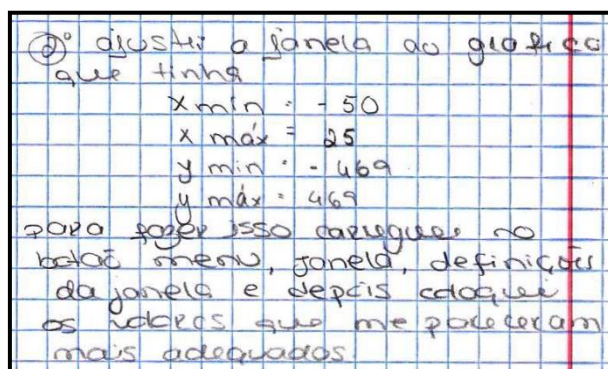 2º ajustei a janela ao gráfico
que tinha
xmin = -50
x máx = 25
y min = -469
y máx = 469
para fazer isso carreguei no
botão menu, janela, definições
da janela e depois coloquei
os valores que me pareceram
mais adequados.